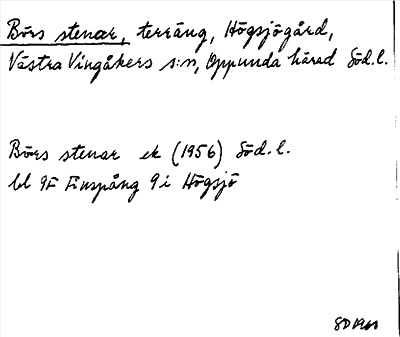 Börs stenar, terräng, Högsjögård,
Västra Vingåkers s:n, Oppunda härad Söd.l.
Börs stenar ek (1956) Söd.l.
bl 9F Finspång 9i Högsjö
SD 1960